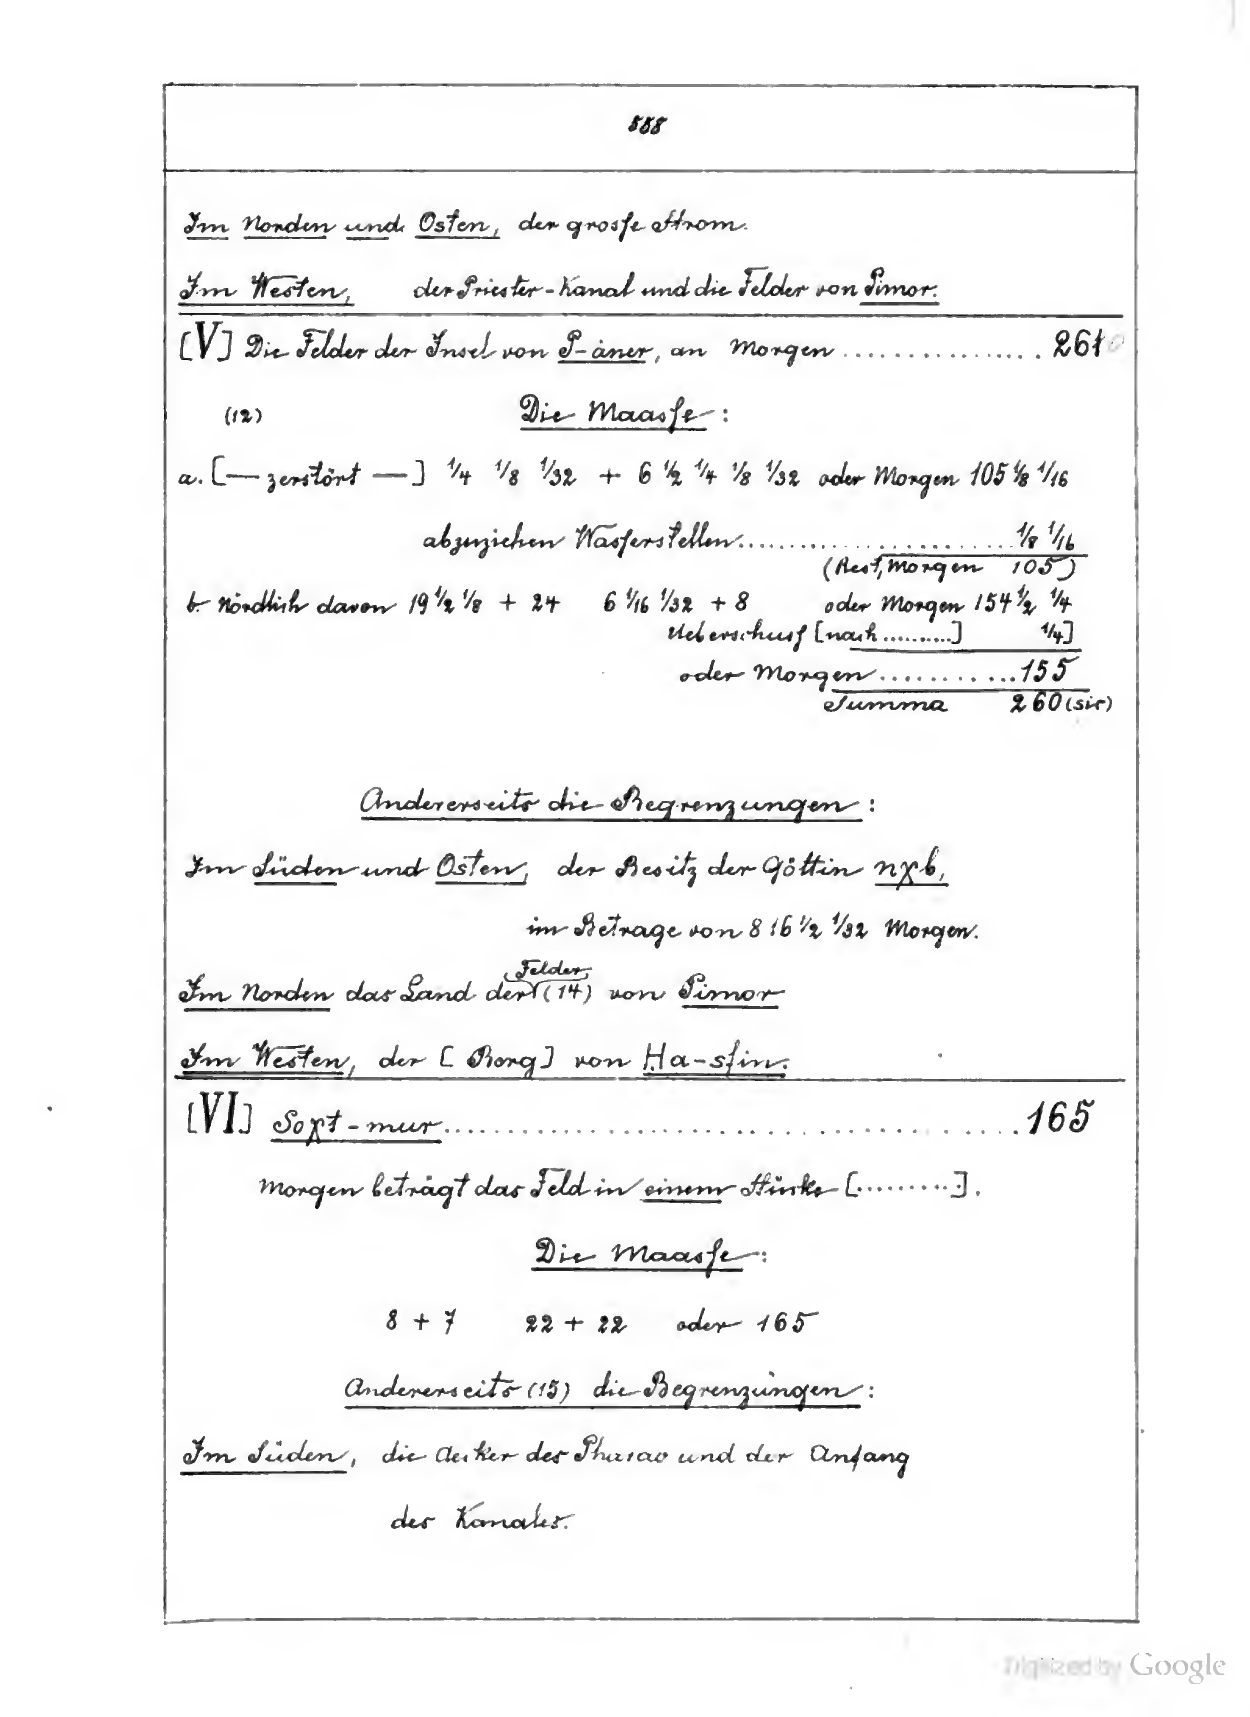 558
Im Norden und Osten, der grosse Strom.
Im Westen, der Priester-Kanal und die Felder von Pimor.
[V] Die Felder der Insel von P-áner, an Morgen ................ 261
(12) Die Maasse:
a. [— zerstört —] 1/4 1/8 1/32 + 6 1/2 1/4 1/8 1/32 oder Morgen 105 1/8 1/16
abzuziehen Wasserstellen........................ 1/8 1/16
(Rest, Morgen 105)
b. Nördlich davon 19 1/2 1/8 + 24 6 1/16 1/32 + 8 oder Morgen 154 1/2 1/4
Ueberschuss [nach ..........] 1/4]
oder Morgen...........155
Summa 260 (sic)
Andererseits die Begrenzungen:
Im Süden und Osten, der Besitz der Göttin nχb,
im Betrage von 816 1/2 1/32 Morgen.
Im Norden das Land der (Felder) (14) von Pimor
Im Westen, der [Berg] von Ha-sfin.
[VI] Soχt-mur........................................165
Morgen beträgt das Feld in einem Stücke [.........].
Die Maasse:
8 + 7 22 + 22 oder 165
Andererseits (15) die Begrenzungen:
Im Süden, die Aecker des Pharao und der Anfang
des Kanales.
Digitized by Google